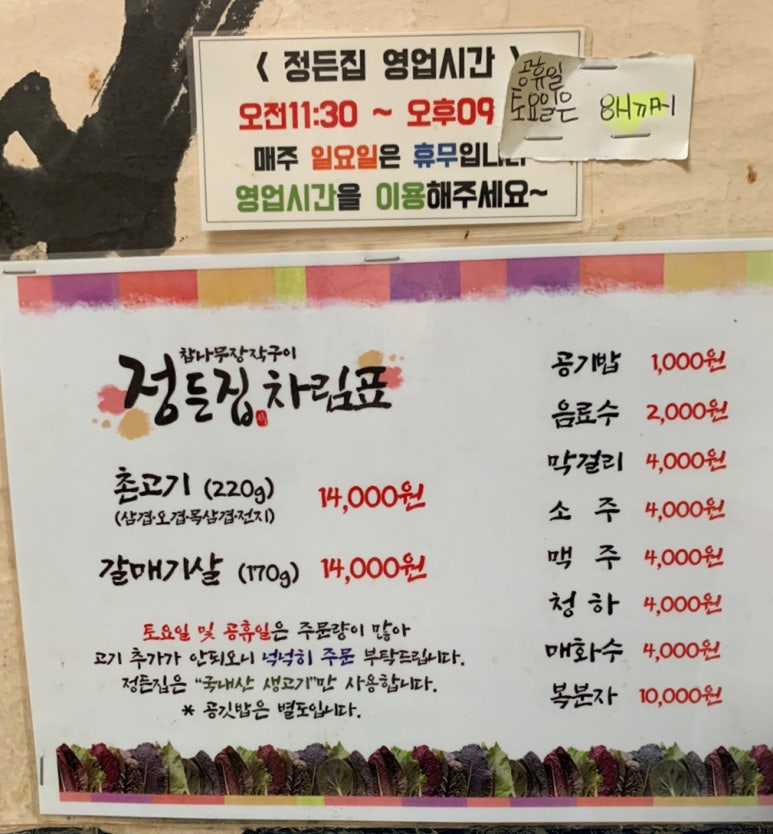 < 정든집 영업시간 >
공휴일
토요일은 8시까지
오전11:30 ~ 오후09
매주 일요일은 휴무입니다
영업시간을 이용해주세요~
참나무장작구이
정든집 차림표
촌고기 (220g) 14,000원
(삼겹·오겹·목삼겹·전지)
갈매기살 (170g) 14,000원
토요일 및 공휴일은 주문량이 많아
고기 추가가 안되오니 넉넉히 주문 부탁드립니다.
정든집은 "국내산 생고기"만 사용합니다.
* 공깃밥은 별도입니다.
공기밥 1,000원
음료수 2,000원
막걸리 4,000원
소 주 4,000원
맥 주 4,000원
청 하 4,000원
매화수 4,000원
복분자 10,000원